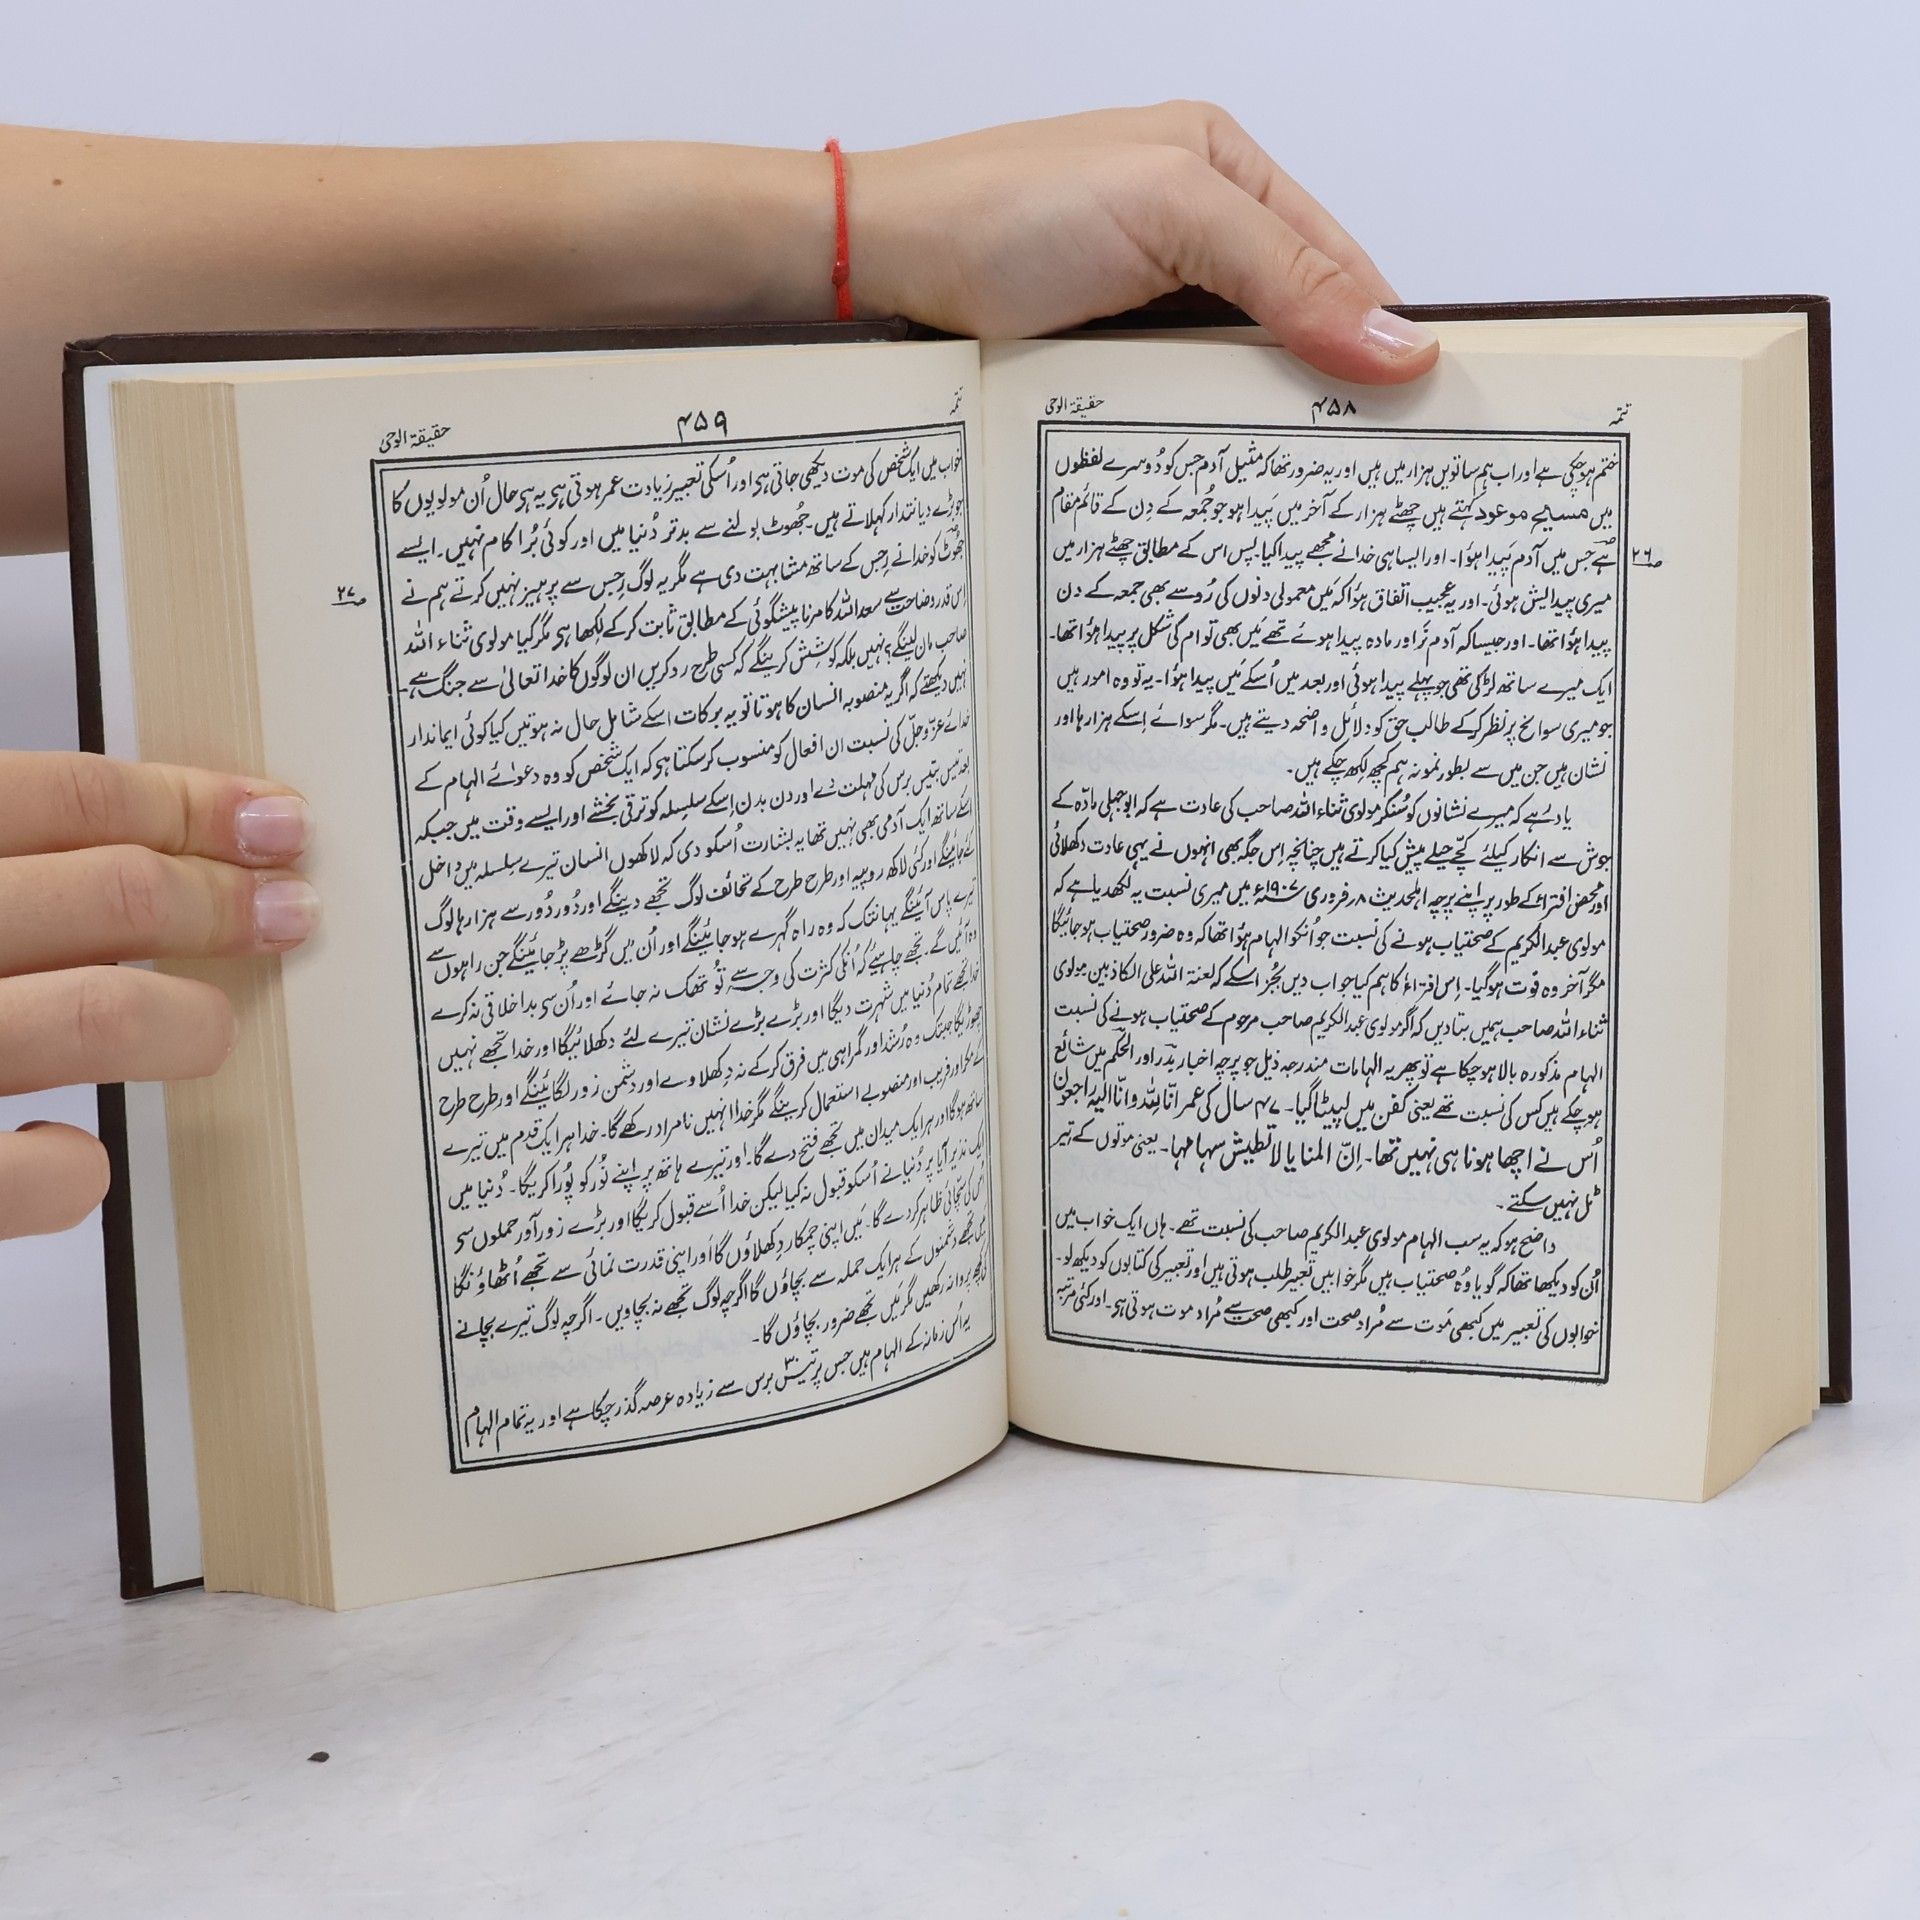 تتمہ
۴۵۸
حقیقۃ الوحی
ختم ہوچکی ہے اور اب ہم ساتویں ہزار میں ہیں اور یہ ضرور تھا کہ مثیل آدم جس کو دُوسرے لفظوں
میں مسیح موعود کہتے ہیں چھٹے ہزار کے آخر میں پَیدا ہو جو جُمعہ کے دِن کے قائم مقام
ہے جس میں آدم پَیدا ہؤا۔ اور ایسا ہی خدا نے مجھے پیدا کیا۔ پس اس کے مطابق چھٹے ہزار میں
ص۲۶
میری پیدایش ہوئی۔ اور یہ عجیب اتفاق ہؤا کہ مَیں معمولی دنوں کی رُو سے بھی جمعہ کے دن
پیدا ہؤا تھا۔ اور جیسا کہ آدم نَر اور مادہ پیدا ہوئے تھے مَیں بھی توام کی شکل پر پیدا ہؤا تھا۔
ایک میرے ساتھ لڑکی تھی جو پہلے پیدا ہوئی اور بعد میں اُسکے مَیں پیدا ہؤا۔ یہ تو وہ امور ہیں
جو میری سوانح پر نظر کرکے طالب حق کو دلائل واضحہ دیتے ہیں۔ مگر سوائے اِسکے ہزارہا اور
نشان ہیں جن میں سے بطور نمونہ ہم کچھ لکھ چکے ہیں۔
یاد رہے کہ میرے نشانوں کو سُنکر مولوی ثناء اللہ صاحب کی عادت ہے کہ ابوجہلی مادّہ کے
جوش سے انکار کیلئے کچے حیلے پیش کیا کرتے ہیں چنانچہ اِس جگہ بھی انہوں نے یہی عادت دکھلائی
اور محض افترا کے طور پر اپنے پرچہ اہلحدیث ۸ر فروری ۱۹۰۷ء میں میری نسبت یہ لکھدیا ہے کہ
مولوی عبد الکریم کے صحتیاب ہونے کی نسبت جو اُنکو الہام ہؤا تھا کہ وہ ضرور صحتیاب ہوجائیگا
مگر آخر وہ فوت ہوگیا۔ اِس افتراء کا ہم کیا جواب دیں بجُز اسکے کہ لعنۃ اللہ علی الکاذبین مولوی
ثناء اللہ صاحب ہمیں بتادیں کہ اگر مولوی عبد الکریم صاحب مرحوم کے صحتیاب ہونے کی نسبت
الہام مذکورہ بالا ہوچکا ہے تو پھر یہ الہامات مندرجہ ذیل جو پرچہ اخبار بدر اور الحکم میں شائع
ہوچکے ہیں کس کی نسبت تھے یعنی کفن میں لپیٹا گیا۔ ۴۷ سال کی عمر انّا للّٰہ وانّا الیہ راجعون
اُس نے اچھا ہونا ہی نہیں تھا۔ اِنّ المنایا لا تطیش سہامہا۔ یعنی موتوں کے تیر
ٹل نہیں سکتے۔
واضح ہو کہ یہ سب الہام مولوی عبد الکریم صاحب کی نسبت تھے۔ ہاں ایک خواب میں
اُن کو دیکھا تھا کہ گویا وُہ صحتیاب ہیں مگر خوابیں تعبیر طلب ہوتی ہیں اور تعبیر کی کتابوں کو دیکھ لو۔
خوابوں کی تعبیر میں کبھی مَوت سے مُراد صحت اور کبھی صحت سے مُراد موت ہوتی ہی۔ اور کئی مرتبہ
تتمہ
۴۵۹
حقیقۃ الوحی
خواب میں ایک شخص کی موت دیکھی جاتی ہی اور اُسکی تعبیر زیادت عمر ہوتی ہی یہ ہی حال اُن مولویوں کا
جو بڑے دیانتدار کہلاتے ہیں۔ جُھوٹ بولنے سے بدتر دُنیا میں اور کوئی بُرا کام نہیں۔ ایسے
جُھوٹ کو خدا نے رِجس کے ساتھ مشابہت دی ہے مگر یہ لوگ رِجس سے پرہیز نہیں کرتے ہم نے
ص۲۷
اِس قدر وضاحت سے سعد اللہ کا مرنا پیشگوئی کے مطابق ثابت کرکے لکھا ہی مگر کیا مولوی ثناء اللہ
صاحب مان لینگے؟ نہیں بلکہ کوشِش کرینگے کہ کسی طرح رد کریں ان لوگوں کا خدا تعالیٰ سے جنگ ہے۔
نہیں دیکھتے کہ اگر یہ منصوبہ انسان کا ہوتا تو یہ برکات اسکے شامل حال نہ ہوتیں کیا کوئی ایماندار
خدائے عزّ وجلّ کی نسبت ان افعال کو منسوب کرسکتا ہی کہ ایک شخص کو وہ دعوٰے الہام کے
بعد تیس بتیس برس کی مہلت دے اور دن بدن اِسکے سلسلہ کو ترقی بخشے اور ایسے وقت میں جبکہ
اسکے ساتھ ایک آدمی بھی نہیں تھا یہ بشارت اُسکو دی کہ لاکھوں انسان تیرے سلسلہ میں داخل
کئے جائینگے اور کئی لاکھ روپیہ اور طرح طرح کے تحائف لوگ تجھے دینگے اور دُور دُور سے ہزارہا لوگ
تیرے پاس آئینگے یہانتک کہ وہ راہ گہرے ہوجائینگے اور اُن میں گڑھے پڑ جائینگے جن راہوں سے
وہ آئیں گے۔ تجھے چاہیئے کہ اُنکی کثرت کی وجہ سے تُو تھک نہ جائے اور اُن سی بداخلاقی نہ کرے
خدا تجھے تمام دُنیا میں شہرت دیگا اور بڑے بڑے نشان تیرے لئے دکھلائیگا اور خدا تجھے نہیں
چھوڑیگا جبتک وہ رُشد اور گمراہی میں فرق کرکے نہ دِکھلاوے اور دشمن زور لگائینگے اور طرح طرح
کے مکر اور فریب اور منصوبے استعمال کرینگے مگر خدا انہیں نامراد رکھے گا۔ خدا ہر ایک قدم میں تیرے
ساتھ ہوگا اور ہر ایک میدان میں تجھے فتح دے گا۔ اور تیرے ہاتھ پر اپنے نُور کو پُورا کریگا۔ دُنیا میں
ایک نذیر آیا پر دُنیا نے اُسکو قبول نہ کیا لیکن خدا اُسے قبول کریگا اور بڑے زورآور حملوں سی
اُس کی سچّائی ظاہر کردے گا۔ مَیں اپنی چمکار دِکھلاؤں گا اَور اپنی قدرت نمائی سے تجھے اُٹھاؤنگا
تجھے دشمنوں کے ہر ایک حملہ سے بچاؤں گا اگرچہ لوگ تجھے نہ بچاویں۔ اگرچہ لوگ تیرے بچانے
کی کچھ پروا نہ رکھیں مگر مَیں تجھے ضرور بچاؤں گا۔
یہ اُس زمانہ کے الہام ہیں جس پر تیس۳۰ برس سے زیادہ عرصہ گذر چکا ہے اور یہ تمام الہام